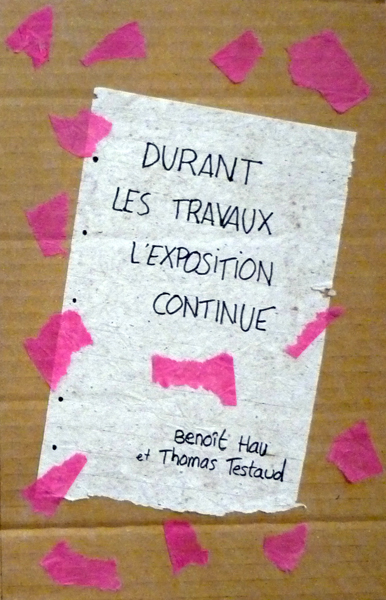 DURANT
LES TRAVAUX
L'EXPOSITION
CONTINUE
Benoît Hau
et Thomas Testaud